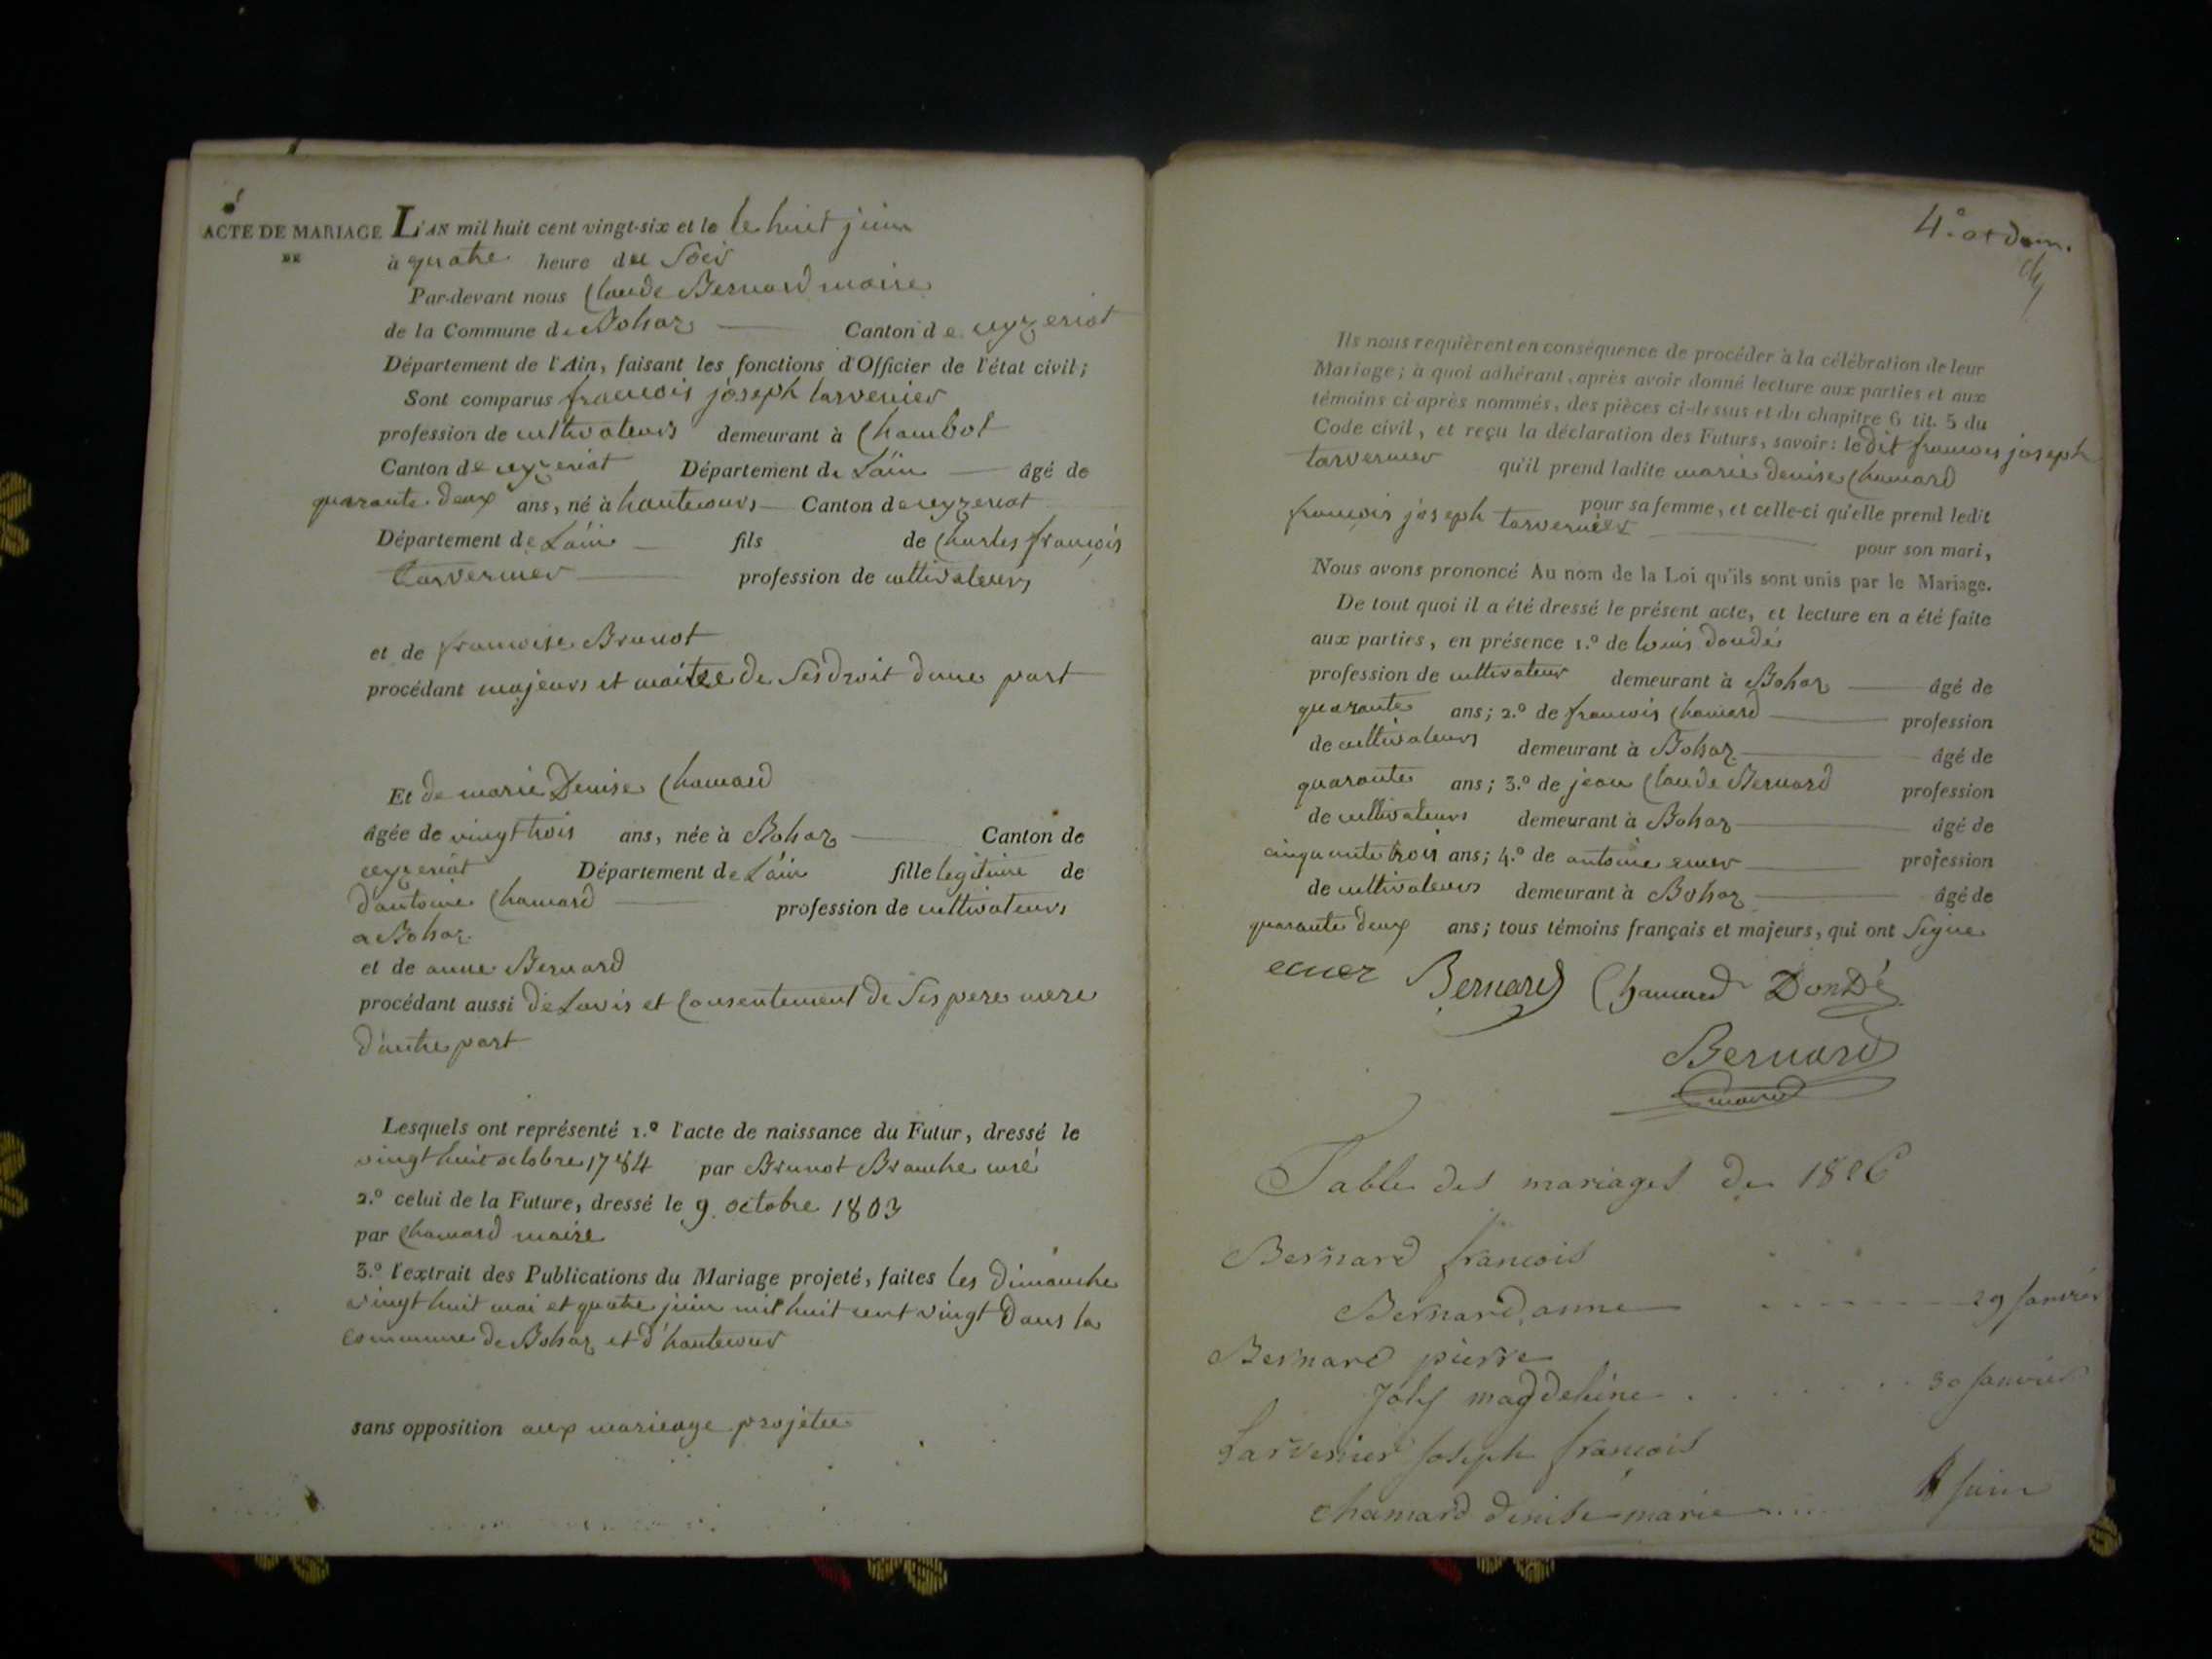 ACTE DE MARIAGE
DE
L'AN mil huit cent vingt-six et le le huit juin
à quatre heure du Soir
Par-devant nous Claude Bernard maire
de la Commune de Bohaz Canton de ceyzeriat
Département de l'Ain, faisant les fonctions d'Officier de l'état civil;
Sont comparus francois joseph tarvernier
profession de cultivateurs demeurant à Chambot
Canton de ceyzeriat Département de Lain âgé de
quarante deux ans, né à hautecours Canton de ceyzeriat
Département de Lain fils de Charles françois
tarvernier profession de cultivateurs
et de francoise Brunot
procédant majeurs et maitre de Ses droit dune part
Et de marie Denise Chamard
âgée de vingt trois ans, née à Bohaz Canton de
ceyzeriat Département de Lain fille legitime de
d'antoine Chamard profession de cultivateurs
a Bohaz
et de anne Bernard
procédant aussi de Lavis et Consentement de Ses pere mere
d'autre part
Lesquels ont représenté 1.º l'acte de naissance du Futur, dressé le
vingt huit octobre 1784 par Brunot Branche curé
2.º celui de la Future, dressé le 9 octobre 1803
par Chamard maire
3.º l'extrait des Publications du Mariage projeté, faites les dimanche
vingt huit mai et quatre juin mil huit cent vingt dans la
commune de Bohaz et d'hautecour
sans opposition aux marieage projetee
4.º
Ils nous requièrent en conséquence de procéder à la célébration de leur
Mariage; à quoi adhérant, après avoir donné lecture aux parties et aux
témoins ci-après nommés, des pièces ci-dessus et du chapitre 6 tit. 5 du
Code civil, et reçu la déclaration des Futurs, savoir: le dit francois joseph
tarvernier qu'il prend ladite marie denise Chamard
pour sa femme, et celle-ci qu'elle prend ledit
francois joseph tarvernier pour son mari,
Nous avons prononcé Au nom de la Loi qu'ils sont unis par le Mariage.
De tout quoi il a été dressé le présent acte, et lecture en a été faite
aux parties, en présence 1.º de louis dondé
profession de cultivateur demeurant à Bohaz âgé de
quarante ans; 2.º de francois Chamard profession
de cultivateurs demeurant à Bohaz âgé de
quarante ans; 3.º de jean Claude Bernard profession
de cultivateurs demeurant à Bohaz âgé de
cinquante trois ans; 4.º de antoine profession
de cultivateurs demeurant à Bohaz âgé de
quarante deux ans; tous témoins français et majeurs, qui ont Signe
Bernard Chamard DonDé
Bernard
maire
Table des mariages de 1826
Bernard francois
Bernard anne 29 Janvier
Bernard pierre
Joly magdeleine 30 Janvier
Tarvernier Joseph francois
Chamard denise marie 8 Juin